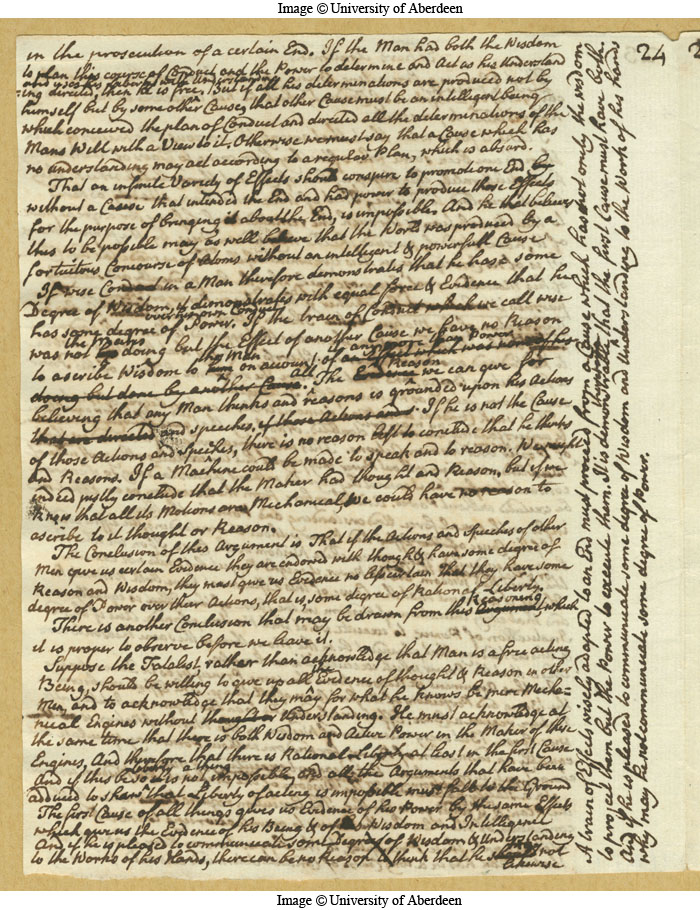 Image © University of Aberdeen
24
in the prosecution of a certain End. If the Man had both the Wisdom
to plan this course of Conduct and the Power to determine and Act as his Understand
ing directed, then he is free. But if all his determinations are produced not by
himself but by some other Cause, that other Cause must be an intelligent being
which conceived the plan of Conduct and directed all the determinations of the
Mans Will with a View to it. Otherwise we must say that a Cause which has
no understanding may act according to a regular Plan, which is absurd.
That an infinite Variety of Effects should conspire to promote one End by
without a Cause that intended the End and had power to produce those Effects
for the purpose of bringing it about the End, is impossible. And he that believes
this to be possible may as well believe that the World was produced by a
fortuitous Concourse of Atoms without an intelligent & powerfull Cause
If wise Conduct in a Man therefore demonstrates that he has some
Degree of Wisdom, it demonstrates with equal force & Evidence that he
over his own
has some degree of Power. If the train of Conduct which we call wise
was not doing but the Effect of another Cause we have no Reason
the Mans any more than Power
to ascribe Wisdom to him on account of an Effect which was none of his
the Man
doing but done by another Cause. All The Evidence we can give for
Reason
believing that any Man thinks and reasons is grounded upon his Actions
that are directed and speeches, if those Actions and. If he is not the Cause
of those Actions and Speeches, there is no reason left to conclude that he thinks
and Reasons. If a Machine could be made to speak and to reason. We might
indeed justly conclude that the Maker had thought and Reason, but if we
know that all its Motions are Mechanical, we could have no reason to
ascribe to it thought or Reason.
The Conclusion of this Argument is That if the Actions and Speeches of other
Men give us certain Evidence they are endowed with thought & have some degree of
Reason and Wisdom, they must give us Evidence no less certain that they have some
degree of Power over their Actions, that is, some degree of Rational Liberty.
Reasoning
There is another Conclusion that may be drawn from this Argument, which
it is proper to observe before we leave it.
Suppose the Fatalist rather than acknowledge that Man is a free acting
Being, should be willing to give up all Evidence of thought & Reason in other
Men, and to acknowledge that they may for what he knows be mere Mecha=
nical Engines without thought or Understanding. He must acknowledge at
the same time that there is both Wisdom and Active Power in the Maker of these
Engines, And therefore that there is Rational Liberty at least in the first Cause
And if this be so it is not impossible, and all the Arguments that have been
adduced to shew that Liberty of acting is impossible must fall to the Ground
The first Cause of all things gives us Evidence of his Power by the same Effects
which give us the Evidence of his Being & of his Wisdom and Intelligence
And if he is pleased to communicate some Degree of Wisdom & Understanding
to the Works of his Hands, there can be no Reason to think that he should not
likewise
A train of Effects wisely adapted to an End must proceed from a Cause which has not only the wisdom
to project them but the Power to execute them. It is demonstrable that the first Cause must have both.
And if he is pleased to communicate some degree of Wisdom and Understanding to the Work of his Hands
why may he not communicate some degree of Power.
Image © University of Aberdeen